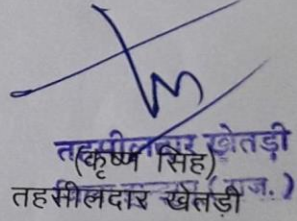 तहसीलदार खेतड़ी
(कृष्ण सिंह)
तहसीलदार खेतड़ी (राज.)